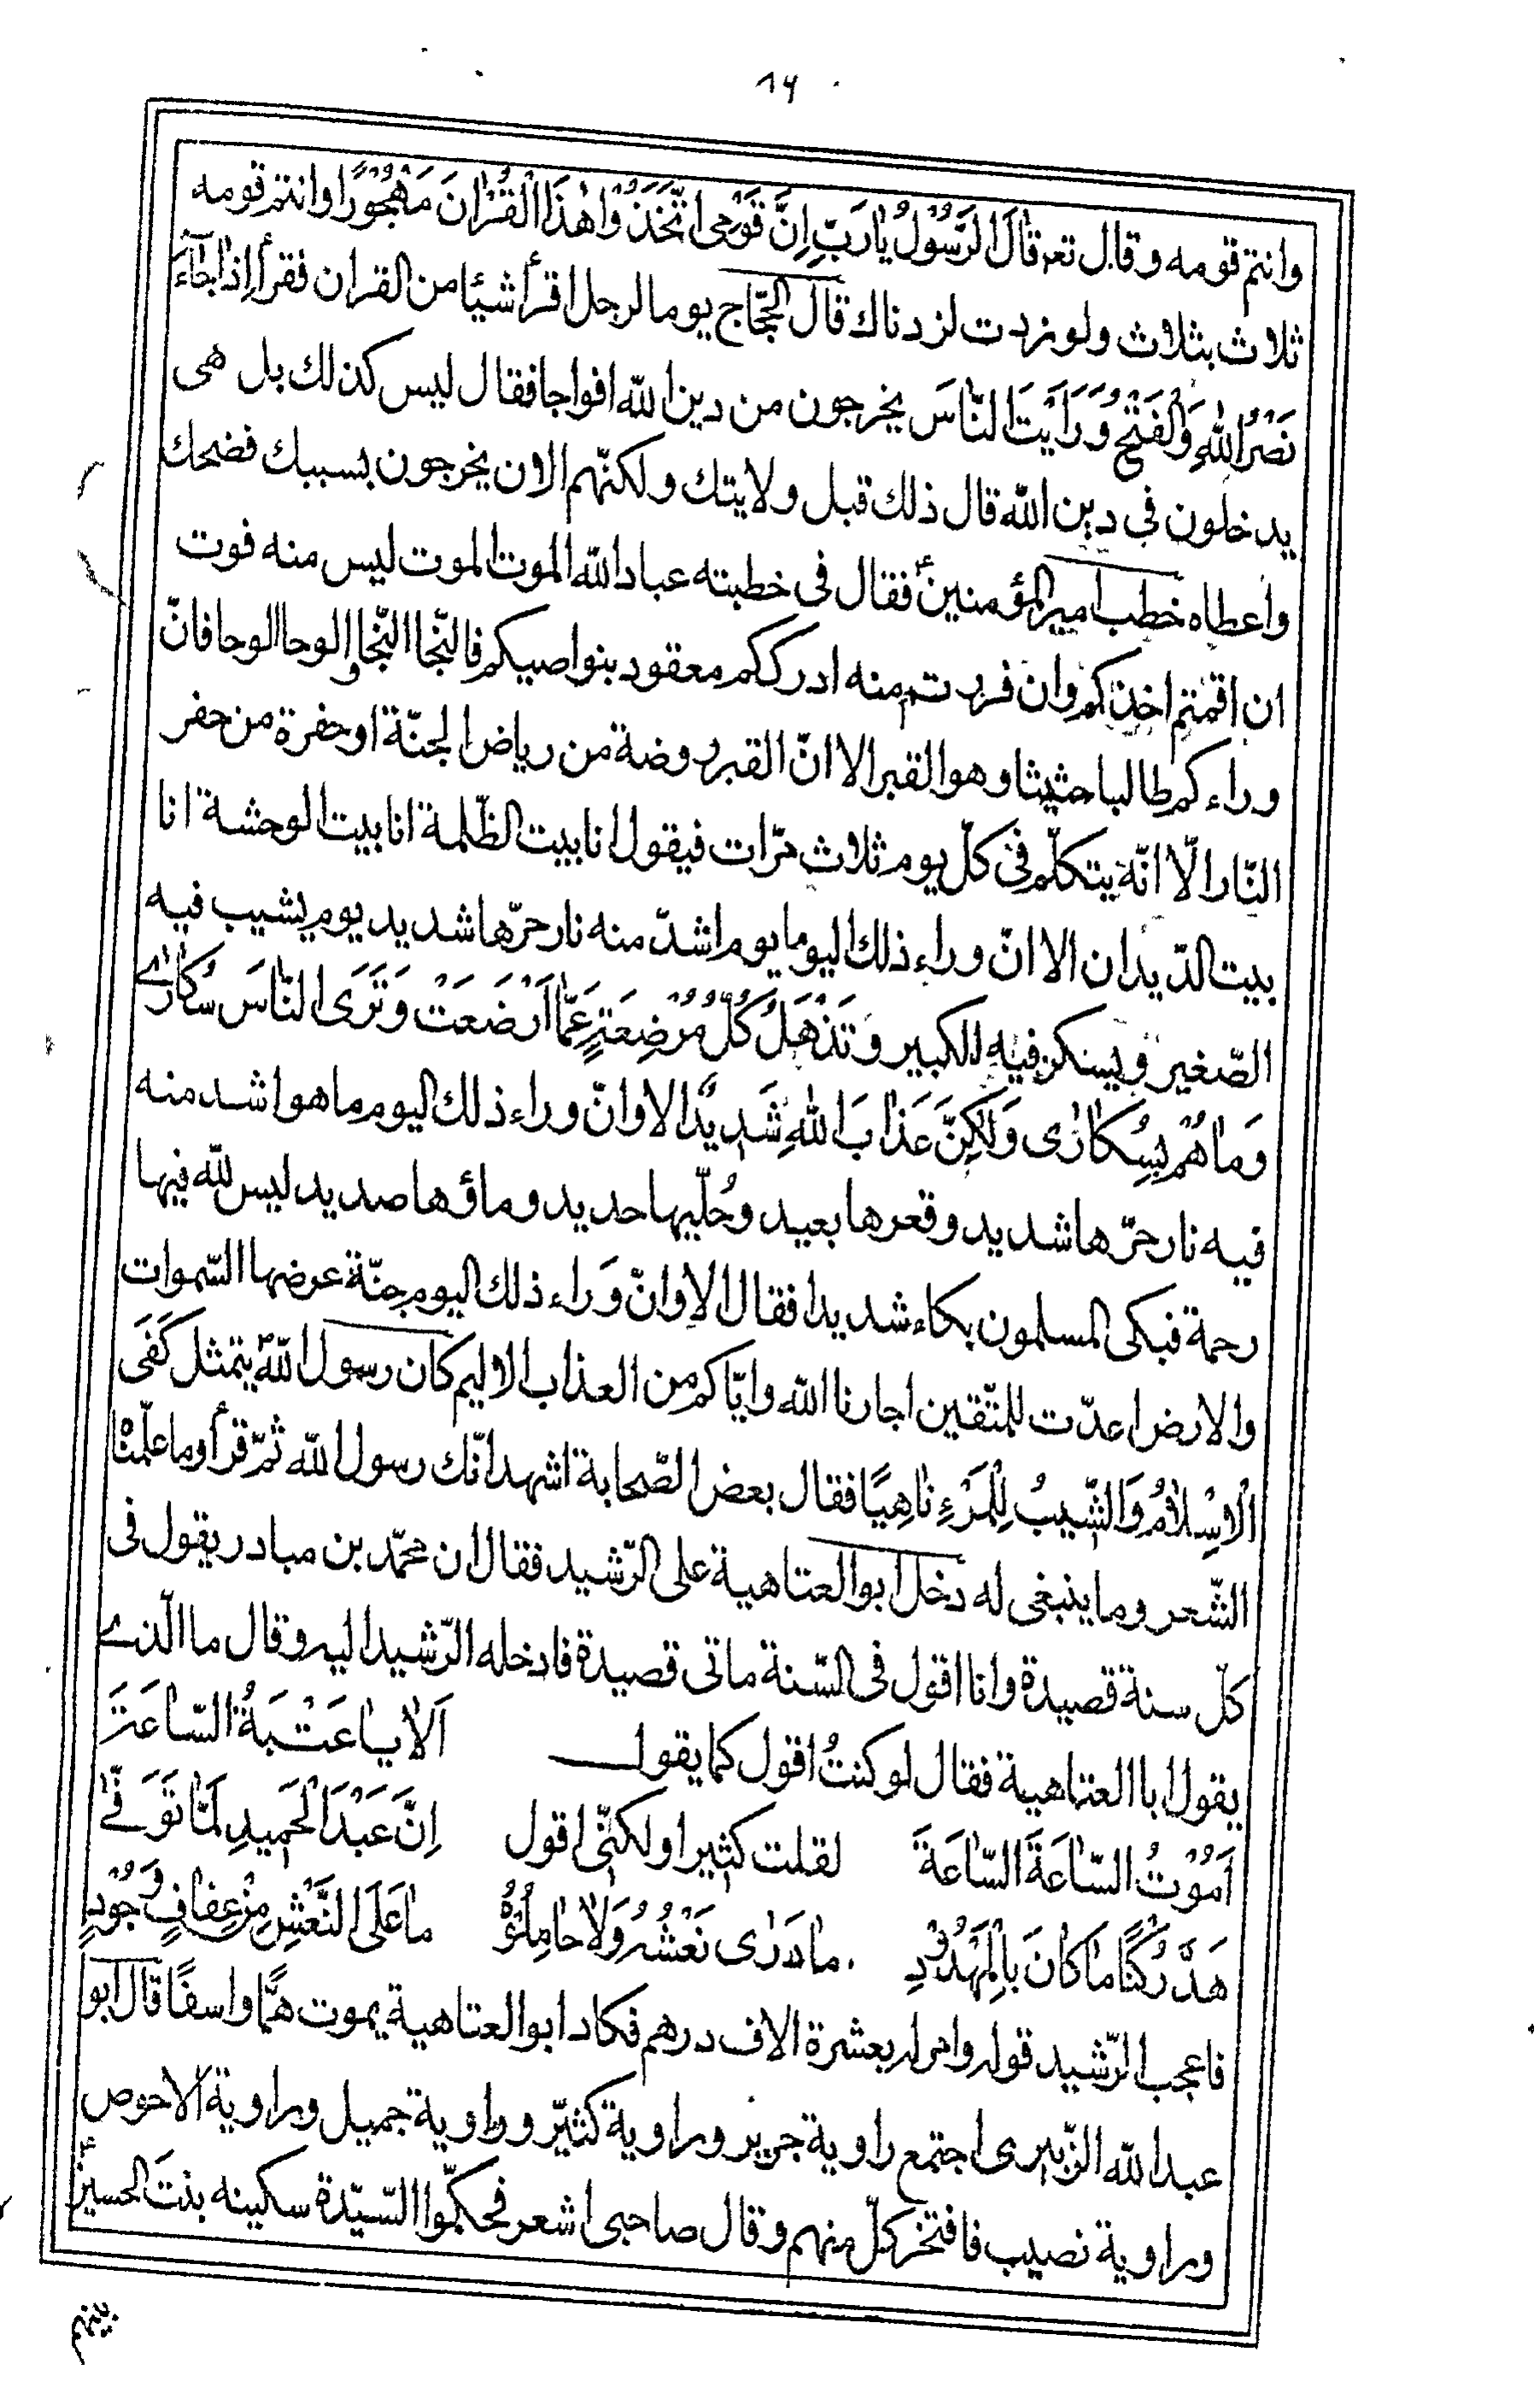 ١٩
وانتم قومه وقال تعر قَالَ الرَّسُولُ يَارَبِّ اِنَّ قَوْمِى اتَّخَذُوْا هٰذَا الْقُرْاٰنَ مَهْجُوْرًا وانتم قومه
ثلاث بثلاث ولو زدت لزدناك قال الحجّاج يوما لرجل اقرأ شيئا من القران فقرأ إذا جَآءَ
نَصْرُ اللّٰهِ وَالْفَتْحُ وَرَاَيْتَ النّاسَ يخرجون من دين اللّه افواجا فقال ليس كذلك بل هى
يدخلون فى دين اللّه قال ذلك قبل ولايتك ولكنّهم الان يخرجون بسببك فضحك
واعطاه خطب امير المؤمنين ع فقال فى خطبته عباد اللّه الموت الموت ليس منه فوت
ان اقمتم اخذكم وان فررتم منه ادرككم معقود بنواصيكم فالنّجا النّجا والوحا الوحا فانّ
وراءكم طالبا حثيثا وهو القبر الا انّ القبر روضة من رياض الجنّة او حفرة من حفر
النّار الّا انّه يتكلّم فى كلّ يوم ثلاث مرّات فيقول انا بيت الظّلمة انا بيت الوحشة انا
بيت الدّيدان الا انّ وراء ذلك اليوم يوما اشدّ منه نار حرّها شديد يوم يشيب فيه
الصّغير ويسكر فيه الكبير وَتَذْهَلُ كُلُّ مُرْضِعَةٍ عَمّا اَرْضَعَتْ وَتَرَى النّاسَ سُكَارٰى
وَمَا هُمْ بِسُكَارٰى وَلٰكِنَّ عَذَابَ اللّٰهِ شَدِيْدٌ الا وانّ وراء ذلك اليوم ما هو اشد منه
فيه نار حرّها شديد وقعرها بعيد وحُلّيها حديد وماؤها صديد ليس للّه فيها
رحمة فبكى المسلمون بكاء شديدا فقال الا وانّ وَراء ذلك اليوم جنّة عرضها السّموات
والارض اعدّت للمتّقين اجارنا اللّه وايّاكم من العذاب الاليم كان رسول اللّه ص يتمثل كَفَى
الْاِسْلَامُ وَالشّيبُ لِلْمَرْءِ نَاهِيًا فقال بعض الصّحابة اشهد انّك رسول اللّه ثمّ قرأ وما علّمناه
الشّعر وما ينبغى له دخل ابو العتاهية على الرّشيد فقال ان محمّد بن مبادر يقول فى
كلّ سنة قصيدة وانا اقول فى السّنة ماتى قصيدة فادخله الرّشيد اليه وقال ما الّذى
يقول ابا العتاهية فقال لو كنتُ اقول كما يقول اَلَا يَا عَتْبَةُ السّاعَةَ
اَمُوْتُ السّاعَةَ السّاعَةَ لقلت كثيرا ولكنّى اقول اِنَّ عَبْدَ الْحَمِيدِ لَمّا تَوَفّٰى
هَدَّ رُكْنًا مَا كَانَ بِالْمَهْدُوْدِ مَا دَرٰى نَعْشُهُ وَلَا حَامِلُوْهُ مَا عَلَى النَّعْشِ مِنْ عِفَافٍ وَجُوْدٍ
فاعجب الرّشيد قوله وامر له بعشرة الاف درهم فكاد ابو العتاهية يموت همًّا واسفًا قال ابو
عبد اللّه الزّبيرى اجتمع راوية جرير وراوية كثيّر وراوية جميل وراوية الاحوص
وراوية نصيب فافتخر كلّ منهم وقال صاحبى اشعر فحكّموا السّيّدة سكينه بنت الحسين ع